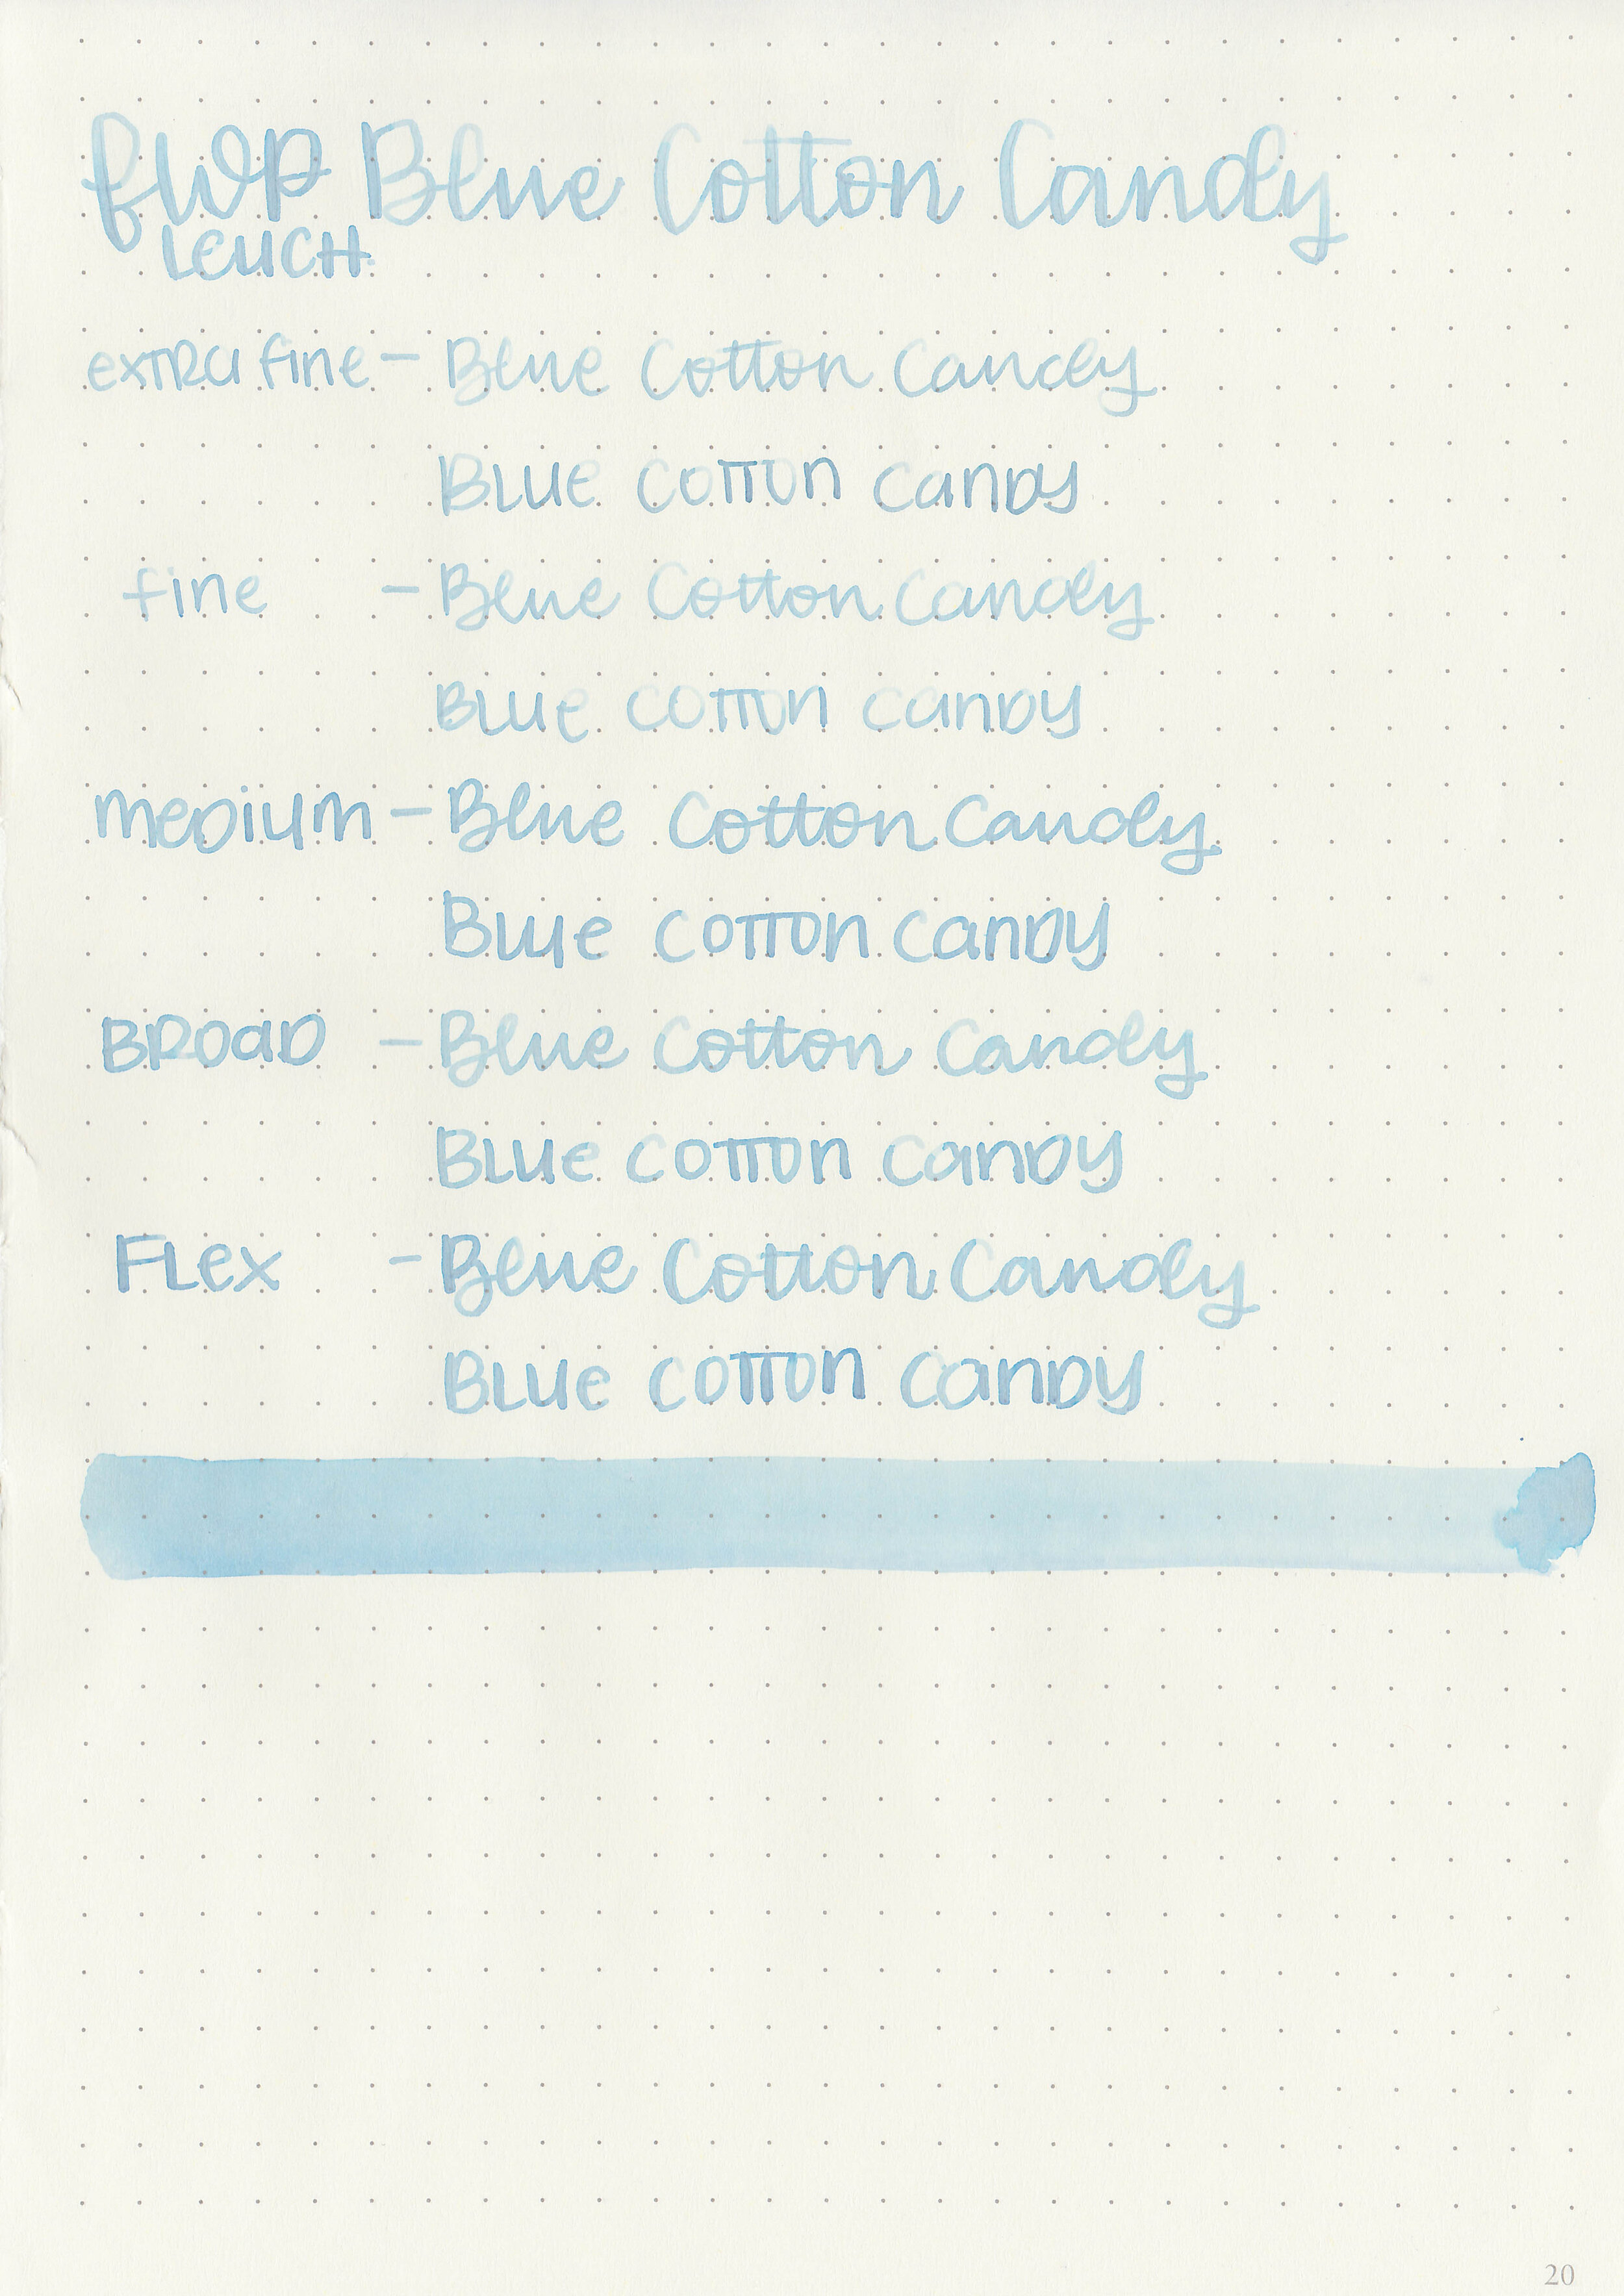 fwp Blue Cotton Candy
LEUCH
extra fine - Blue Cotton Candy
Blue Cotton Candy
fine - Blue Cotton Candy
Blue Cotton Candy
medium - Blue Cotton Candy
Blue Cotton Candy
Broad - Blue Cotton Candy
Blue Cotton Candy
Flex - Blue Cotton Candy
Blue Cotton Candy
20